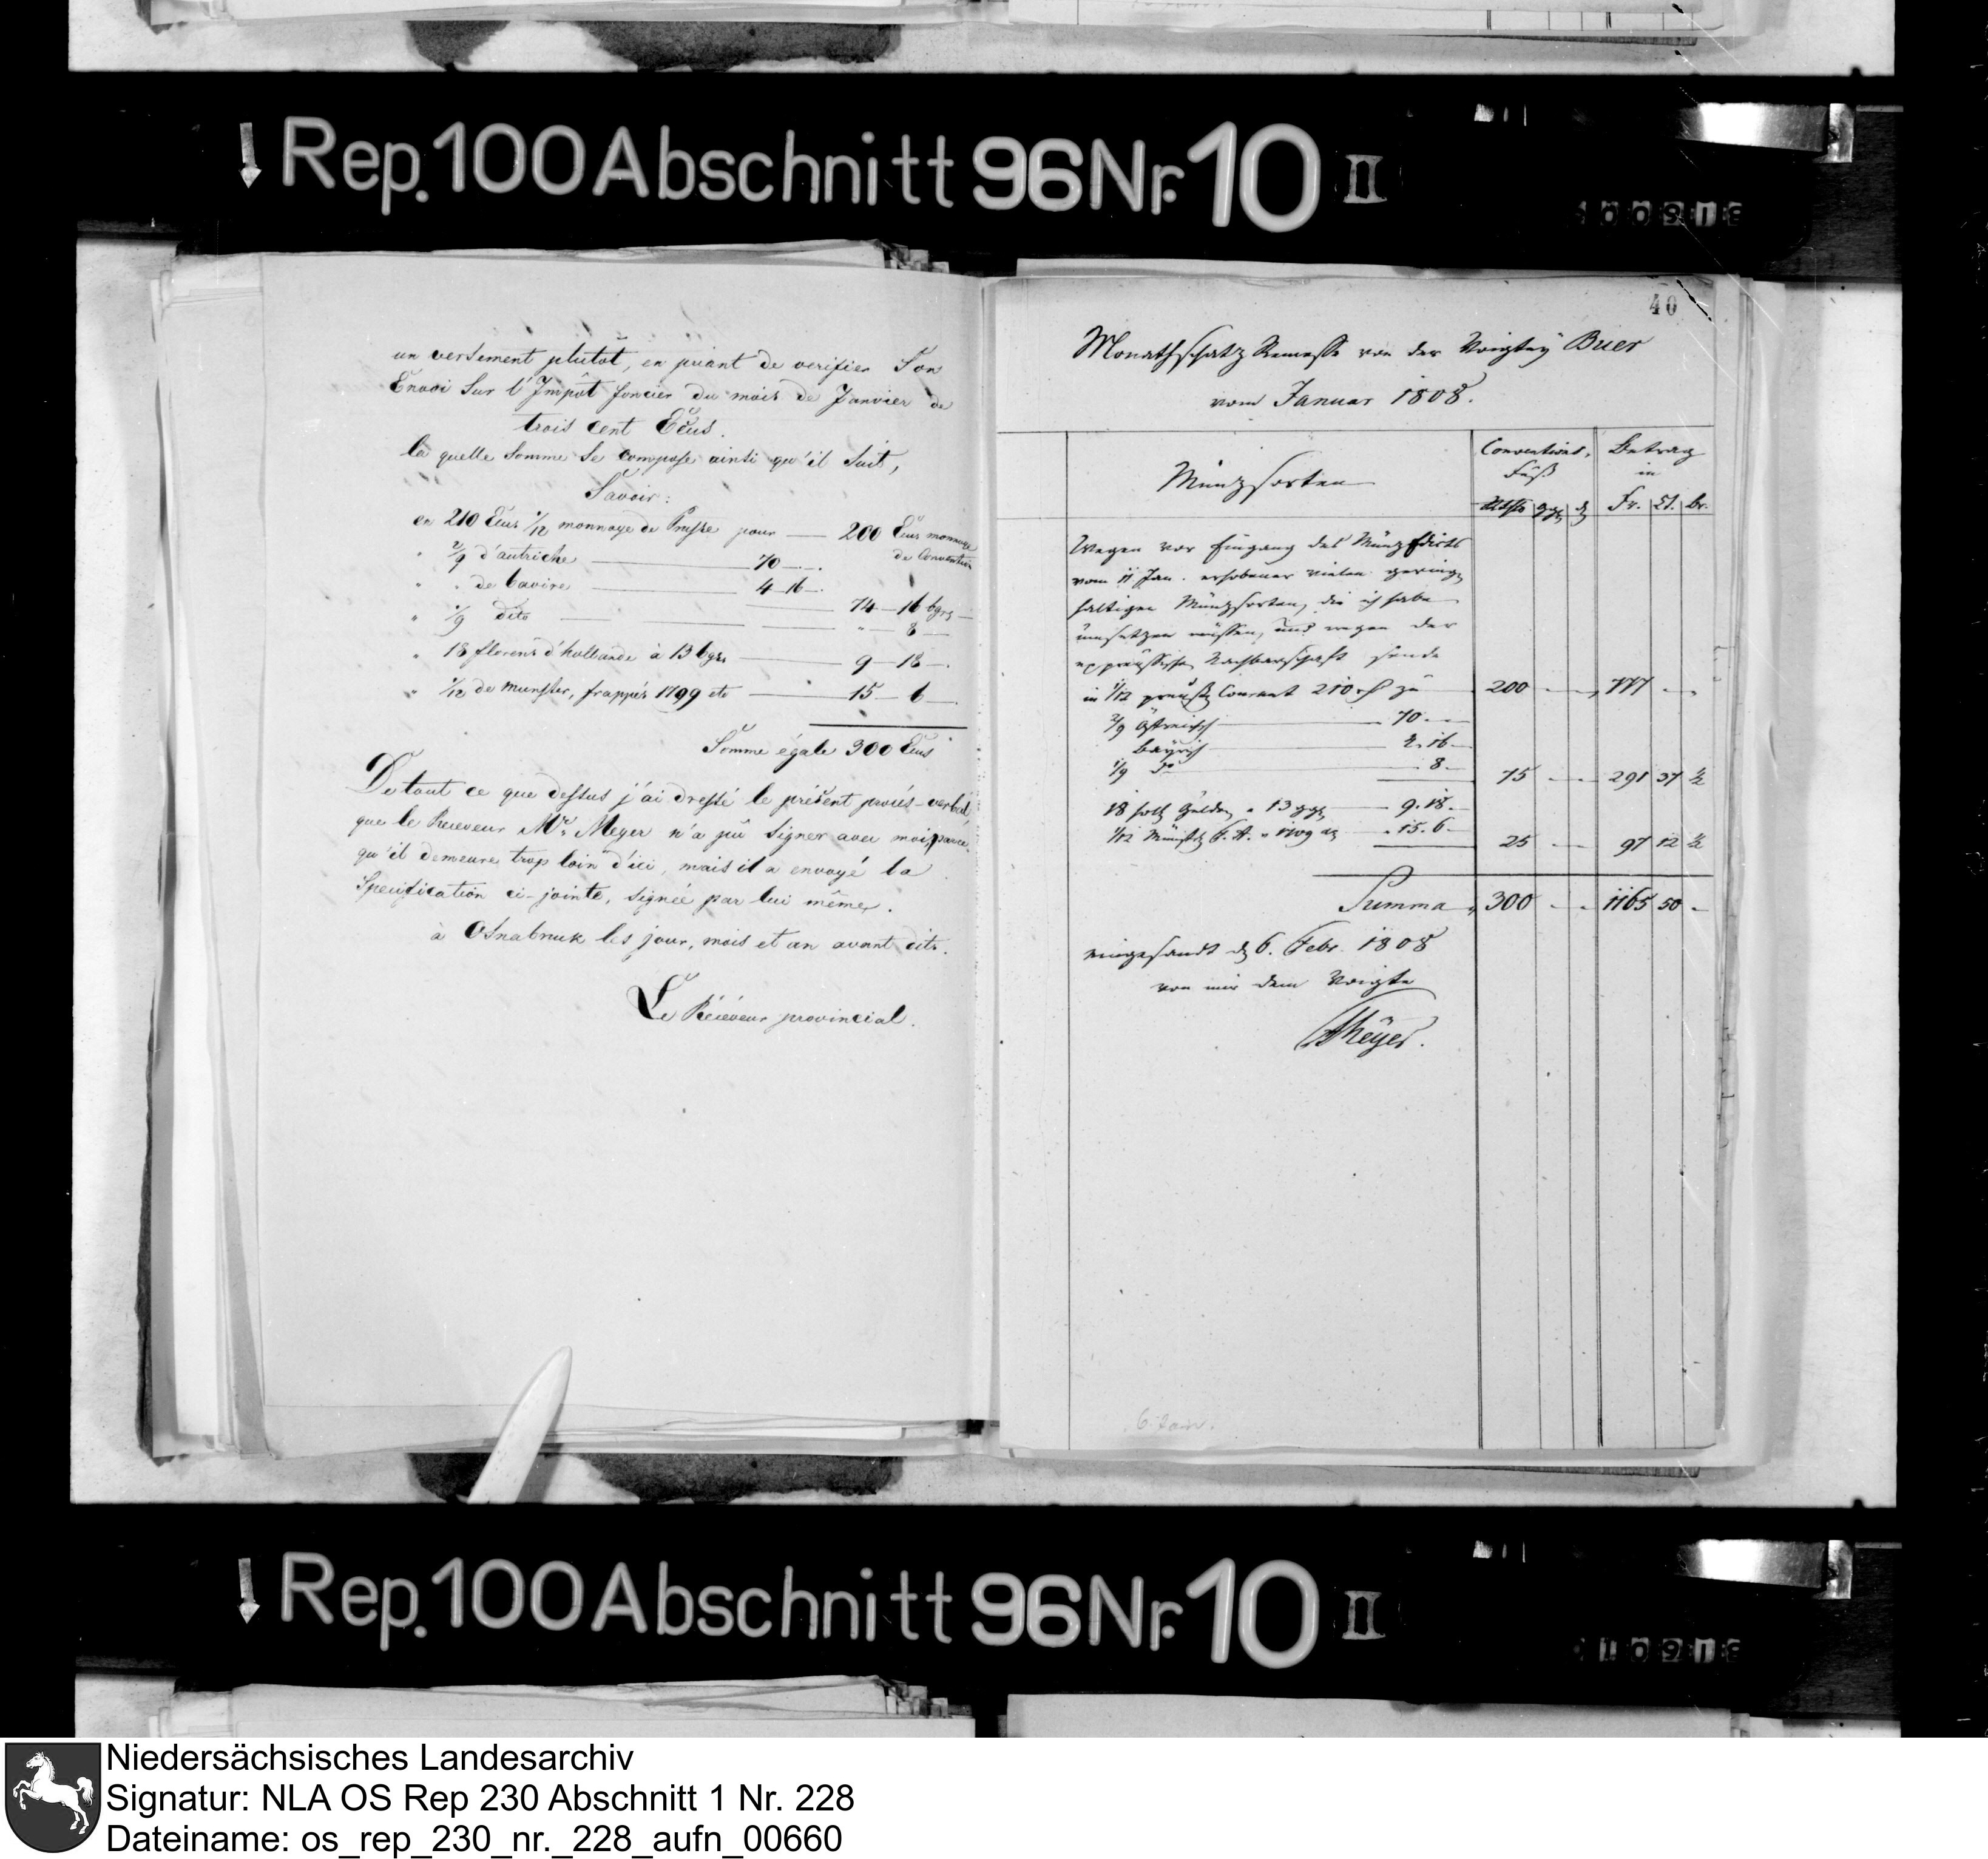 Rep. 100 Abschnitt 96 Nr. 10 II
un versement plutôt, en priant de verifier Son
Envoi Sur l'Impôt foncier du mois de Janvier de
trois cent Ecus.
la quelle Somme Se compose ainsi qu'il Suit,
Savoir:
en 210 Ecus 1/12 monnaye de Prusse pour — 200 Ecus monnaye de Convention
" 2/9 d'autriche — 70 — .
" " de baviere — 4 — 16 — .
74 — 16 bgrs —
" 1/9 dito — " — 8 —
" 18 florens d'hollande à 13 bgrs — 9 — 18 — .
" 1/12 de Munster, frappés 1709 etc — 15 — 6 — .
Somme égale 300 Ecus
De tout ce que dessus j'ai dressé le présent procés-verbal,
que le Receveur Mr. Meyer n'a pû Signer avec moi, parce
qu'il demeure trop loin d'ici, mais il a envoyé la
Specification ci-jointe, signée par lui même.
à Osnabruk les jour, mois et an avant dits.
Le Réceveur provincial.
40
Monathschatz Remesse von der Voigtey Buer
vom Januar 1808.
Münzsorten
Conventions Fuß
Betrag in
Rthlr ggr d
Fr. Ct.
Wegen vor Eingang des Münzedicts
vom 11 Jan. erhobener vielen gering
haltigen Münzsorten, die ich habe
umsetzen müssen, und wegen der
Nachbarschaft sende
in 1/12 preuß Courant 210 rh zu 200 — — 777 — —
2/9 Östreichsch — 70 — —
Bayrisch — 4. 16 —
1/9 do — 8 —
75 — — 291 37 1/2
18 holl Gulden a 13 ggr — 9. 18 —
1/12 Münster — 15. 6 —
25 — — 97 12 1/2
Summa 300 — — 1165 50 —
eingesandt d 6. Febr. 1808
von mir dem Voigte
Meyer.
Rep. 100 Abschnitt 96 Nr. 10 II
Niedersächsisches Landesarchiv
Signatur: NLA OS Rep 230 Abschnitt 1 Nr. 228
Dateiname: os_rep_230_nr._228_aufn_00660